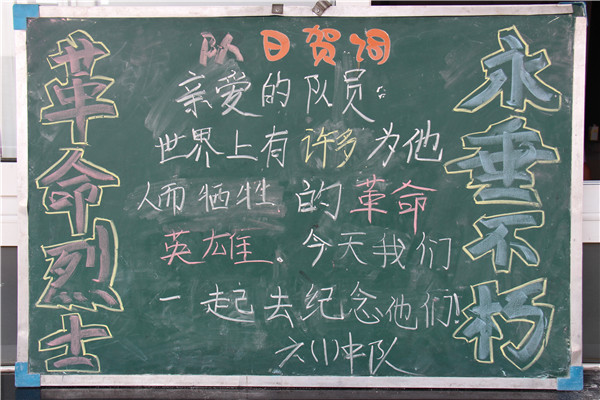 队日贺词
革命烈士
亲爱的队员：
世界上有许多为他
人而牺牲的革命
英雄。今天我们
一起去纪念他们！
六(1)中队
永垂不朽